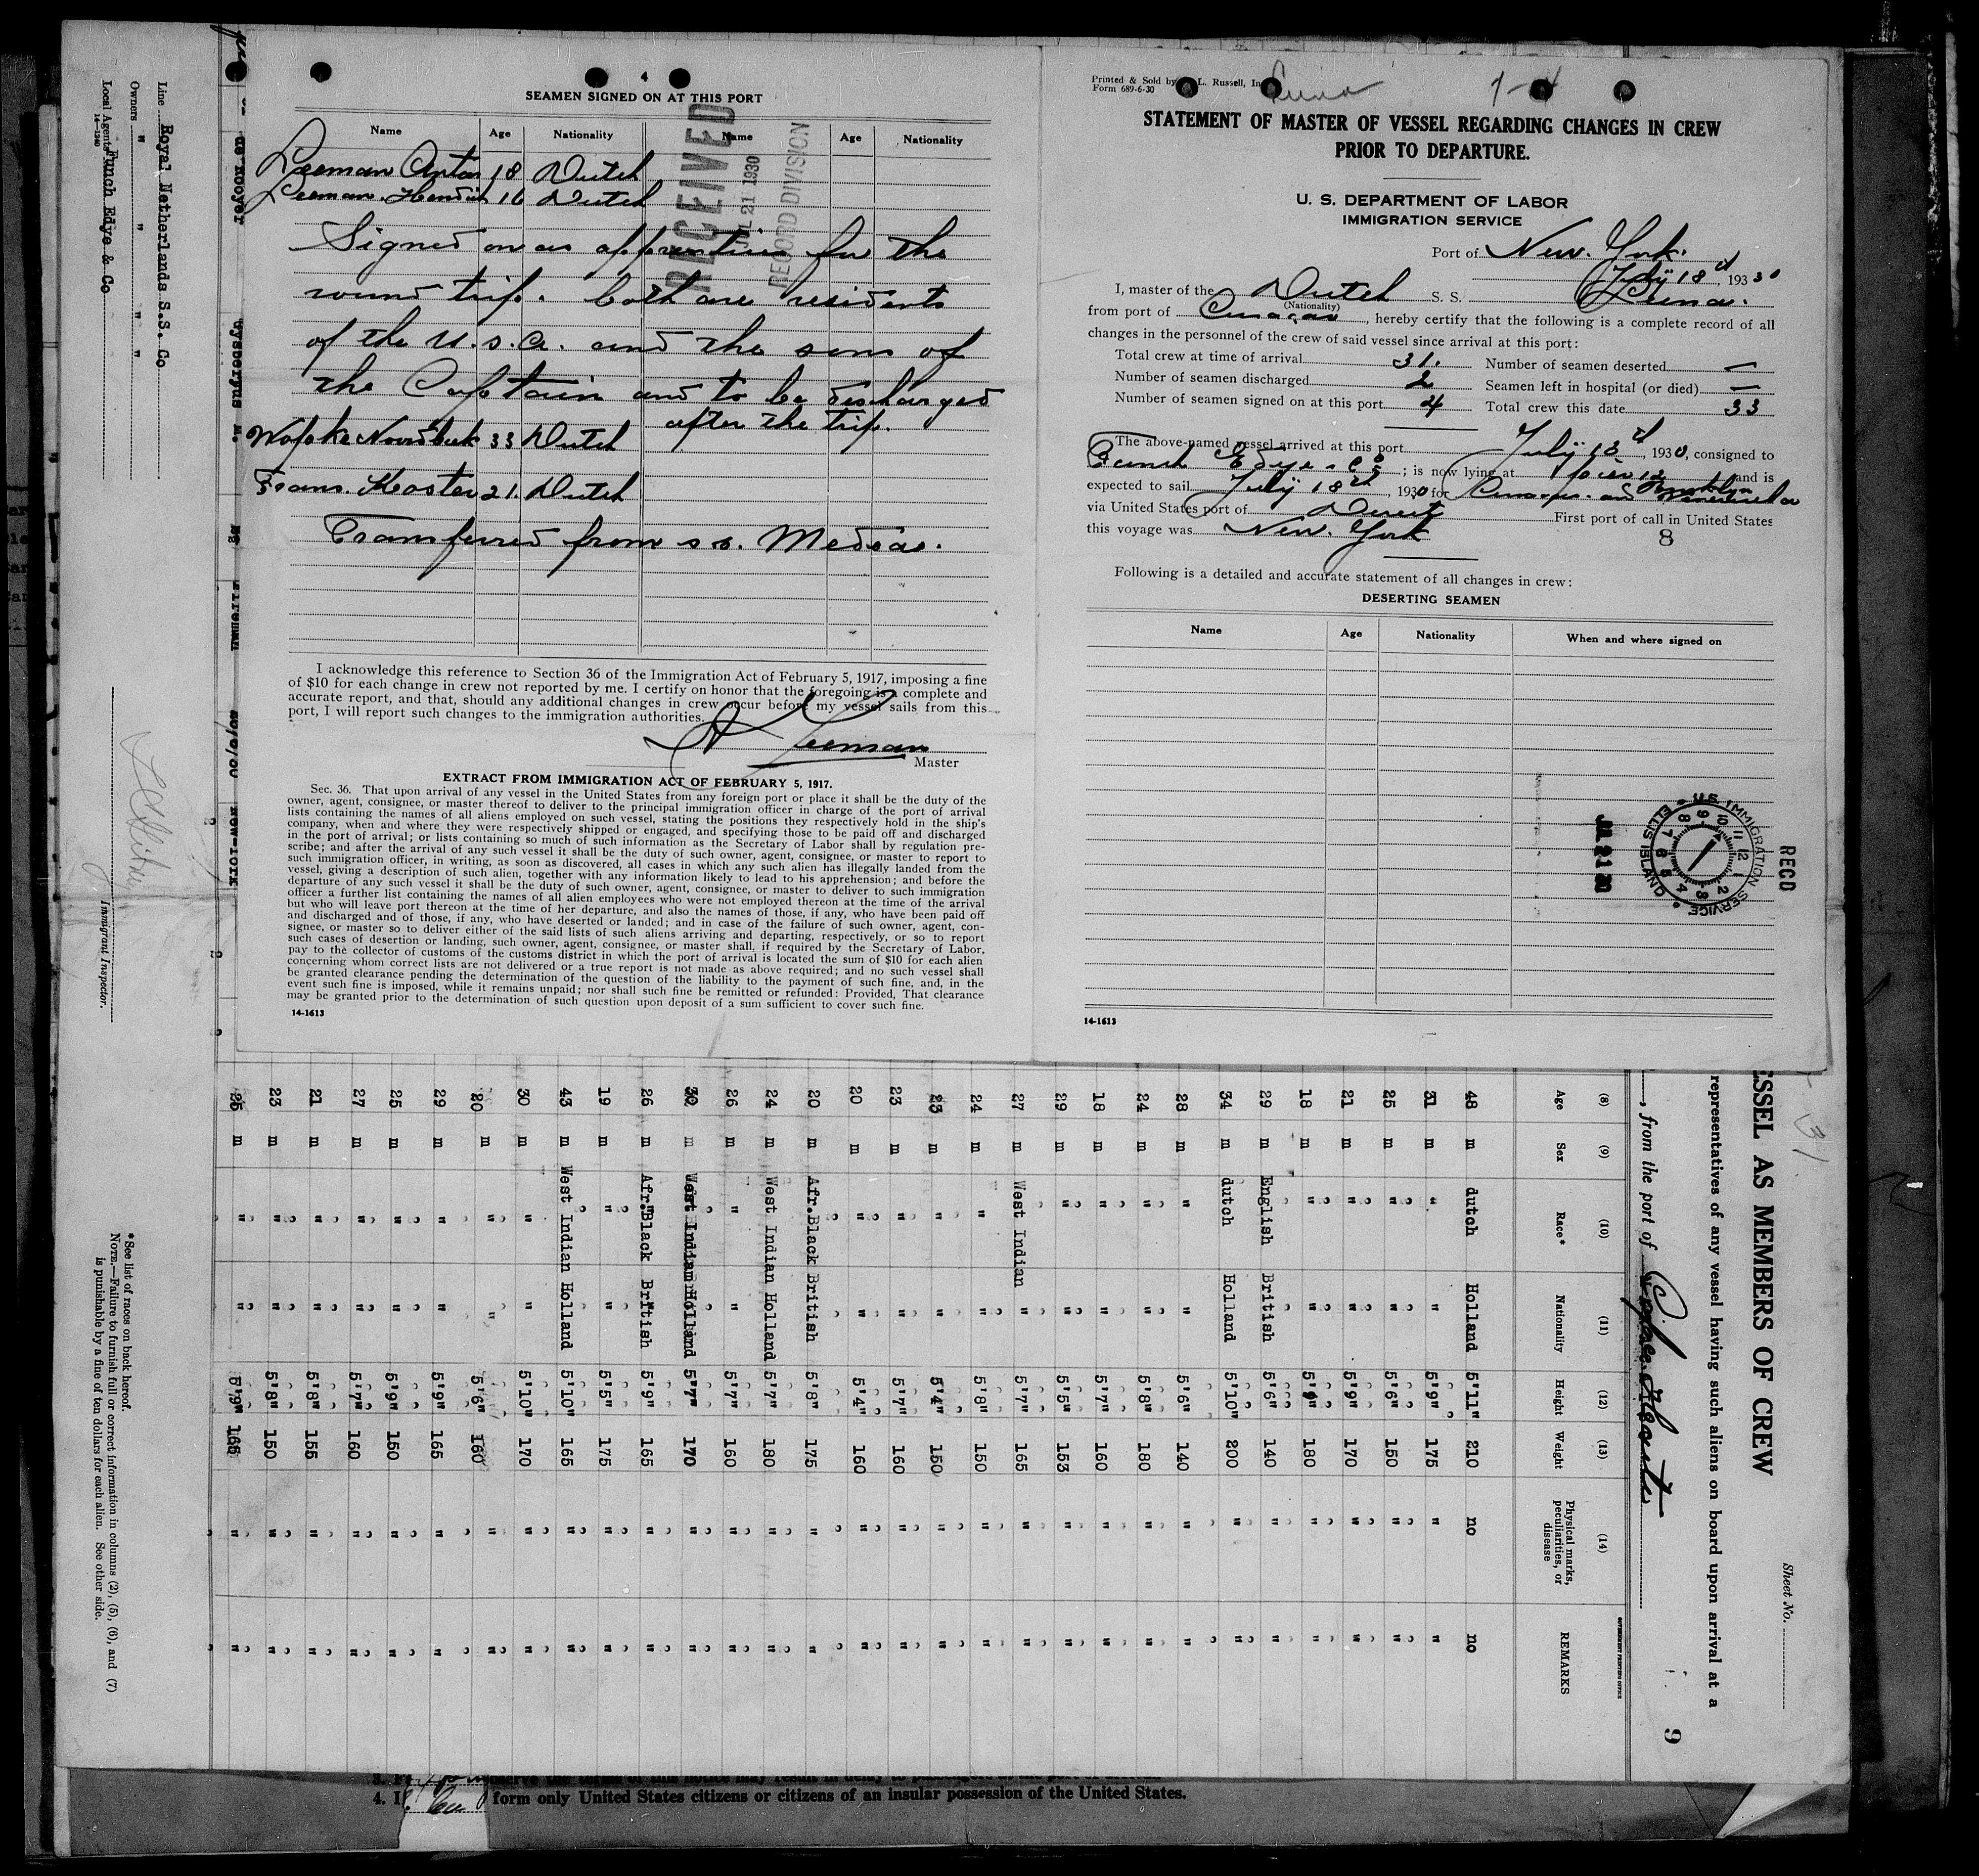 4
SEAMEN SIGNED ON AT THIS PORT
Name Age Nationality Name Age Nationality
Leeman Anton 18 Dutch
Leeman Hendrik 16 Dutch
Signed on as apprentice for the
round trip. both are residents
of the U.S.A. and the sons of
the Captain and to be discharged
after the trip.
33 Dutch
Frans. Koster 21. Dutch
Transferred from s.s. Medea.
RECEIVED
JUL 21 1930
RECORD DIVISION
I acknowledge this reference to Section 36 of the Immigration Act of February 5, 1917, imposing a fine
of $10 for each change in crew not reported by me. I certify on honor that the foregoing is a complete and
accurate report, and that, should any additional changes in crew occur before my vessel sails from this
port, I will report such changes to the immigration authorities.
A Leeman
Master
EXTRACT FROM IMMIGRATION ACT OF FEBRUARY 5, 1917.
Sec. 36. That upon arrival of any vessel in the United States from any foreign port or place it shall be the duty of the
owner, agent, consignee, or master thereof to deliver to the principal immigration officer in charge of the port of arrival
lists containing the names of all aliens employed on such vessel, stating the positions they respectively hold in the ship's
company, when and where they were respectively shipped or engaged, and specifying those to be paid off and discharged
in the port of arrival; or lists containing so much of such information as the Secretary of Labor shall by regulation pre-
scribe; and after the arrival of any such vessel it shall be the duty of such owner, agent, consignee, or master to report to
such immigration officer, in writing, as soon as discovered, all cases in which any such alien has illegally landed from the
vessel, giving a description of such alien, together with any information likely to lead to his apprehension; and before the
departure of any such vessel it shall be the duty of such owner, agent, consignee, or master to deliver to such immigration
officer a further list containing the names of all alien employees who were not employed thereon at the time of the arrival
but who will leave port thereon at the time of her departure, and also the names of those, if any, who have been paid off
and discharged and of those, if any, who have deserted or landed; and in case of the failure of such owner, agent, con-
signee, or master so to deliver either of the said lists of such aliens arriving and departing, respectively, or so to report
such cases of desertion or landing, such owner, agent, consignee, or master shall, if required by the Secretary of Labor,
pay to the collector of customs of the customs district in which the port of arrival is located the sum of $10 for each alien
concerning whom correct lists are not delivered or a true report is not made as above required; and no such vessel shall
be granted clearance pending the determination of the question of the liability to the payment of such fine, and, in the
event such fine is imposed, while it remains unpaid; nor shall such fine be remitted or refunded: Provided, That clearance
may be granted prior to the determination of such question upon deposit of a sum sufficient to cover such fine.
14-1613
Printed & Sold by L. Russell, In
Form 689-6-30
STATEMENT OF MASTER OF VESSEL REGARDING CHANGES IN CREW
PRIOR TO DEPARTURE.
U. S. DEPARTMENT OF LABOR
IMMIGRATION SERVICE
Port of New. York.
July 18 d, 1930
I, master of the Dutch S. S. Luna.
(Nationality)
from port of Curaçao, hereby certify that the following is a complete record of all
changes in the personnel of the crew of said vessel since arrival at this port:
Total crew at time of arrival 31. Number of seamen deserted —
Number of seamen discharged 2 Seamen left in hospital (or died) —
Number of seamen signed on at this port 4 Total crew this date 33
The above-named vessel arrived at this port July 13 d, 1930, consigned to
Funch Edye & Co; is now lying at pier 12 Brooklyn and is
expected to sail July 18th, 1930 for Curaçao and Venezuela
via United States port of Direct First port of call in United States
this voyage was New. York
8
Following is a detailed and accurate statement of all changes in crew:
DESERTING SEAMEN
Name Age Nationality When and where signed on
RECD
U.S. IMMIGRATION SERVICE
ELLIS ISLAND
JUL 21 30
14-1613
Line Royal Netherlands S.S. Co
Owners " " " "
Local Agents Funch Edye & Co
14-1240
Immigrant Inspector.
*See list of races on back hereof.
NOTE.—Failure to furnish full or correct information in columns (2), (5), (6), and (7)
is punishable by a fine of ten dollars for each alien. See other side.
Sheet No.
ESSEL AS MEMBERS OF CREW
representatives of any vessel having such aliens on board upon arrival at a
, from the port of
9
(8) (9) (10) (11) (12) (13) (14)
Age Sex Race* Nationality Height Weight Physical marks, peculiarities, or disease REMARKS
48 m dutch Holland 5'11" 210 no no
31 m " " 5'9" 175 " "
25 m " " 5'6" 150 " "
21 m " " 5'9" 170 " "
18 m " " 180 " "
29 m English British 5'6" 140 " "
34 m dutch Holland 5'10" 200 " "
28 m " " 5'6" 140 " "
24 m " " 5'8" 180 " "
18 m " " 5'7" 160 " "
29 m " " 5'5" 153 " "
27 m West Indian " 5'7" 165 " "
24 m " " 5'8" 150 " "
23 m " " 5'4" 150 " "
23 m " " 5'7" 160 " "
20 m " " 5'4" 160 " "
20 m Afr.Black British 5'8" 175 " "
24 m West Indian Holland 5'7" 180 " "
26 m " " 5'7" 160 " "
30 m West Indian Holland 5'7" 170 " "
26 m Afr.Black British 5'9" 165 " "
19 m " " 5'5" 175 " "
43 m West Indian Holland 5'10" 165 " "
30 m " " 5'10" 170 " "
20 m " " 5'6" 160 " "
29 m " " 5'9" 165 " "
25 m " " 5'9" 150 " "
27 m " " 5'7" 160 " "
21 m " " 5'8" 155 " "
23 m " " 5'8" 150 " "
m " " 5'9" 165 " "
4. I form only United States citizens or citizens of an insular possession of the United States.